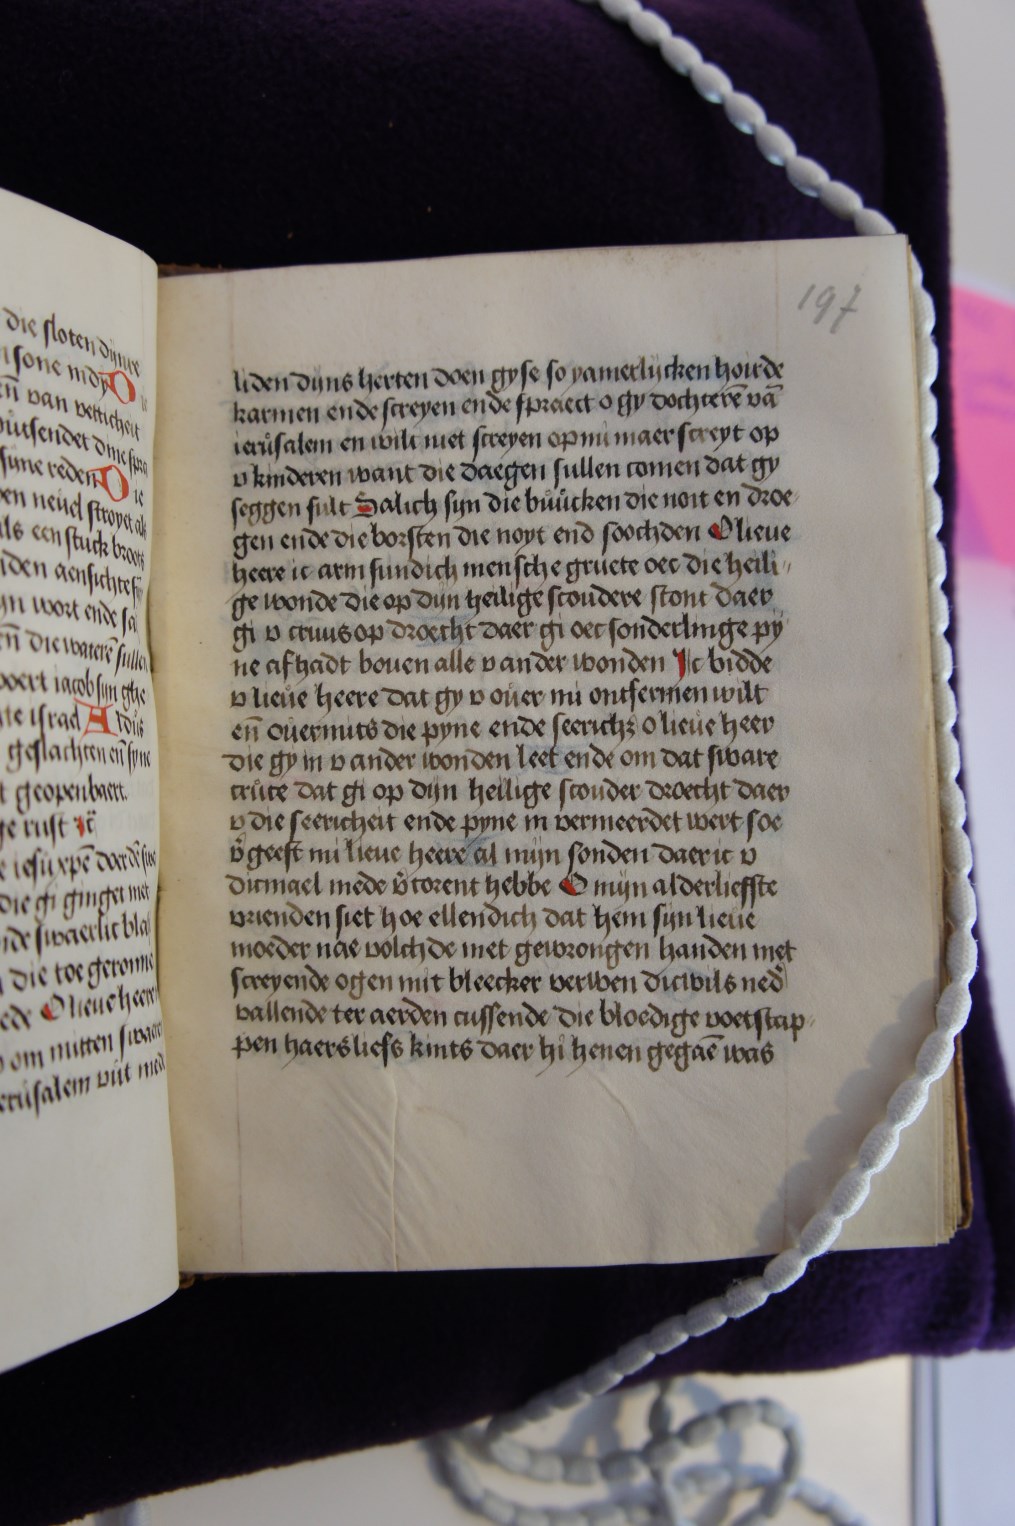 die sloten dynre
sone
en̄ van vetticheit
uutsendet dine
syne reden D ie
neuel stroyet als
als een stuck broots
aensichte
wort ende
en̄ die waterē sullen
iacob syn
te israel Aldus
geslachten en̄ syne
geopenbaert.
rust
iesu xp̄e
die gi ginget met
swaerlic
die toe
O lieue heere
om mitten
ierusalem uut
197
liden dijns herten doen gyse so yamerlijcken hoirde
karmen ende screyen ende spraect o gy dochterē vā
ierusalem en wilt niet screyen op mi maer screyt op
v kinderen want die daegen sullen comen dat gy
seggen sult Salich syn die buucken die noit en droe
gen ende die borsten die noyt end soochden O lieue
heere ic arm sundich mensche gruete oec die heili
ge wonde die op dijn heilige scoudere stont daer
gi v cruus op droecht daer gi oec sonderlinge py
ne af hadt bouen alle v ander wonden Ic bidde
v lieue heere dat gy v ouer mi ontfermen wilt
en̄ ouermits die pyne ende seerichz o lieue heer
die gy in v ander wonden leet ende om dat sware
cruce dat gi op dijn heilige scouder droecht daer
v die seericheit ende pyne in vermeerdet wert soe
v̄geeft mi lieue heere al mijn sonden daer ic v
dicmael mede v̄torent hebbe O mijn alderliefste
vrienden siet hoe ellendich dat hem sijn lieue
moeder nae volchde met gewrongen handen met
screyende ogen mit bleecker verwen dicwils ned̄
vallende ter aerden cussende die bloedige voetstap
pen haers liefs kints daer hi henen gegaē was